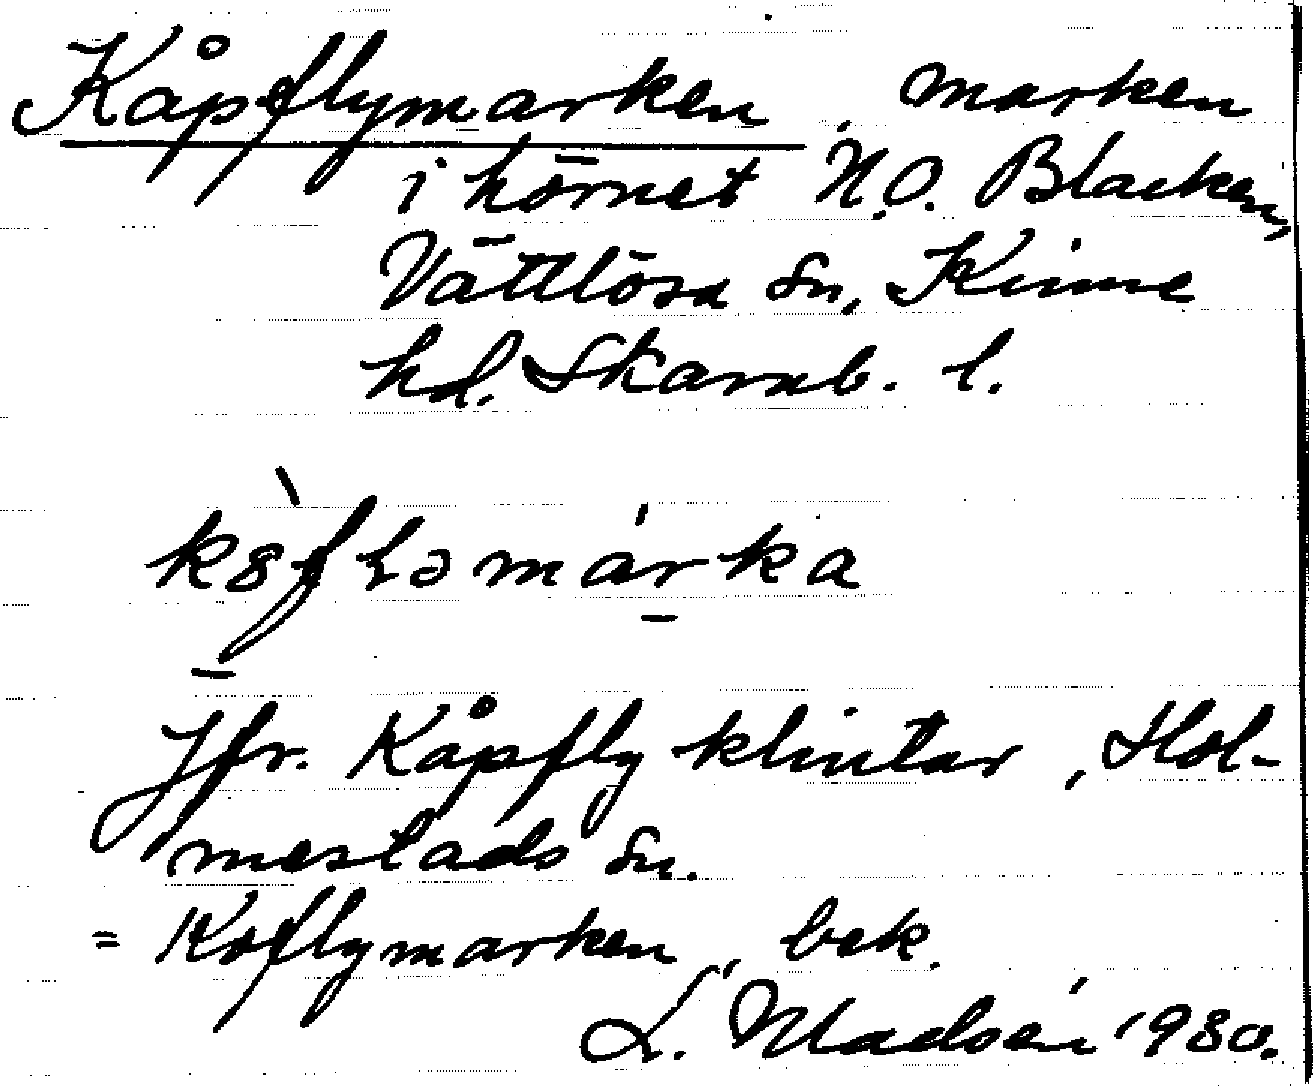 Kåpflymarken, marken
i hörnet N.O. Blacken,
Vättlösa sn, Kinne
hd. Skarab. l.
Jfr. Kåpfly klintar, Hol-
mestads sn.
= Koflymarken, bek.
L. Madsén 1930.